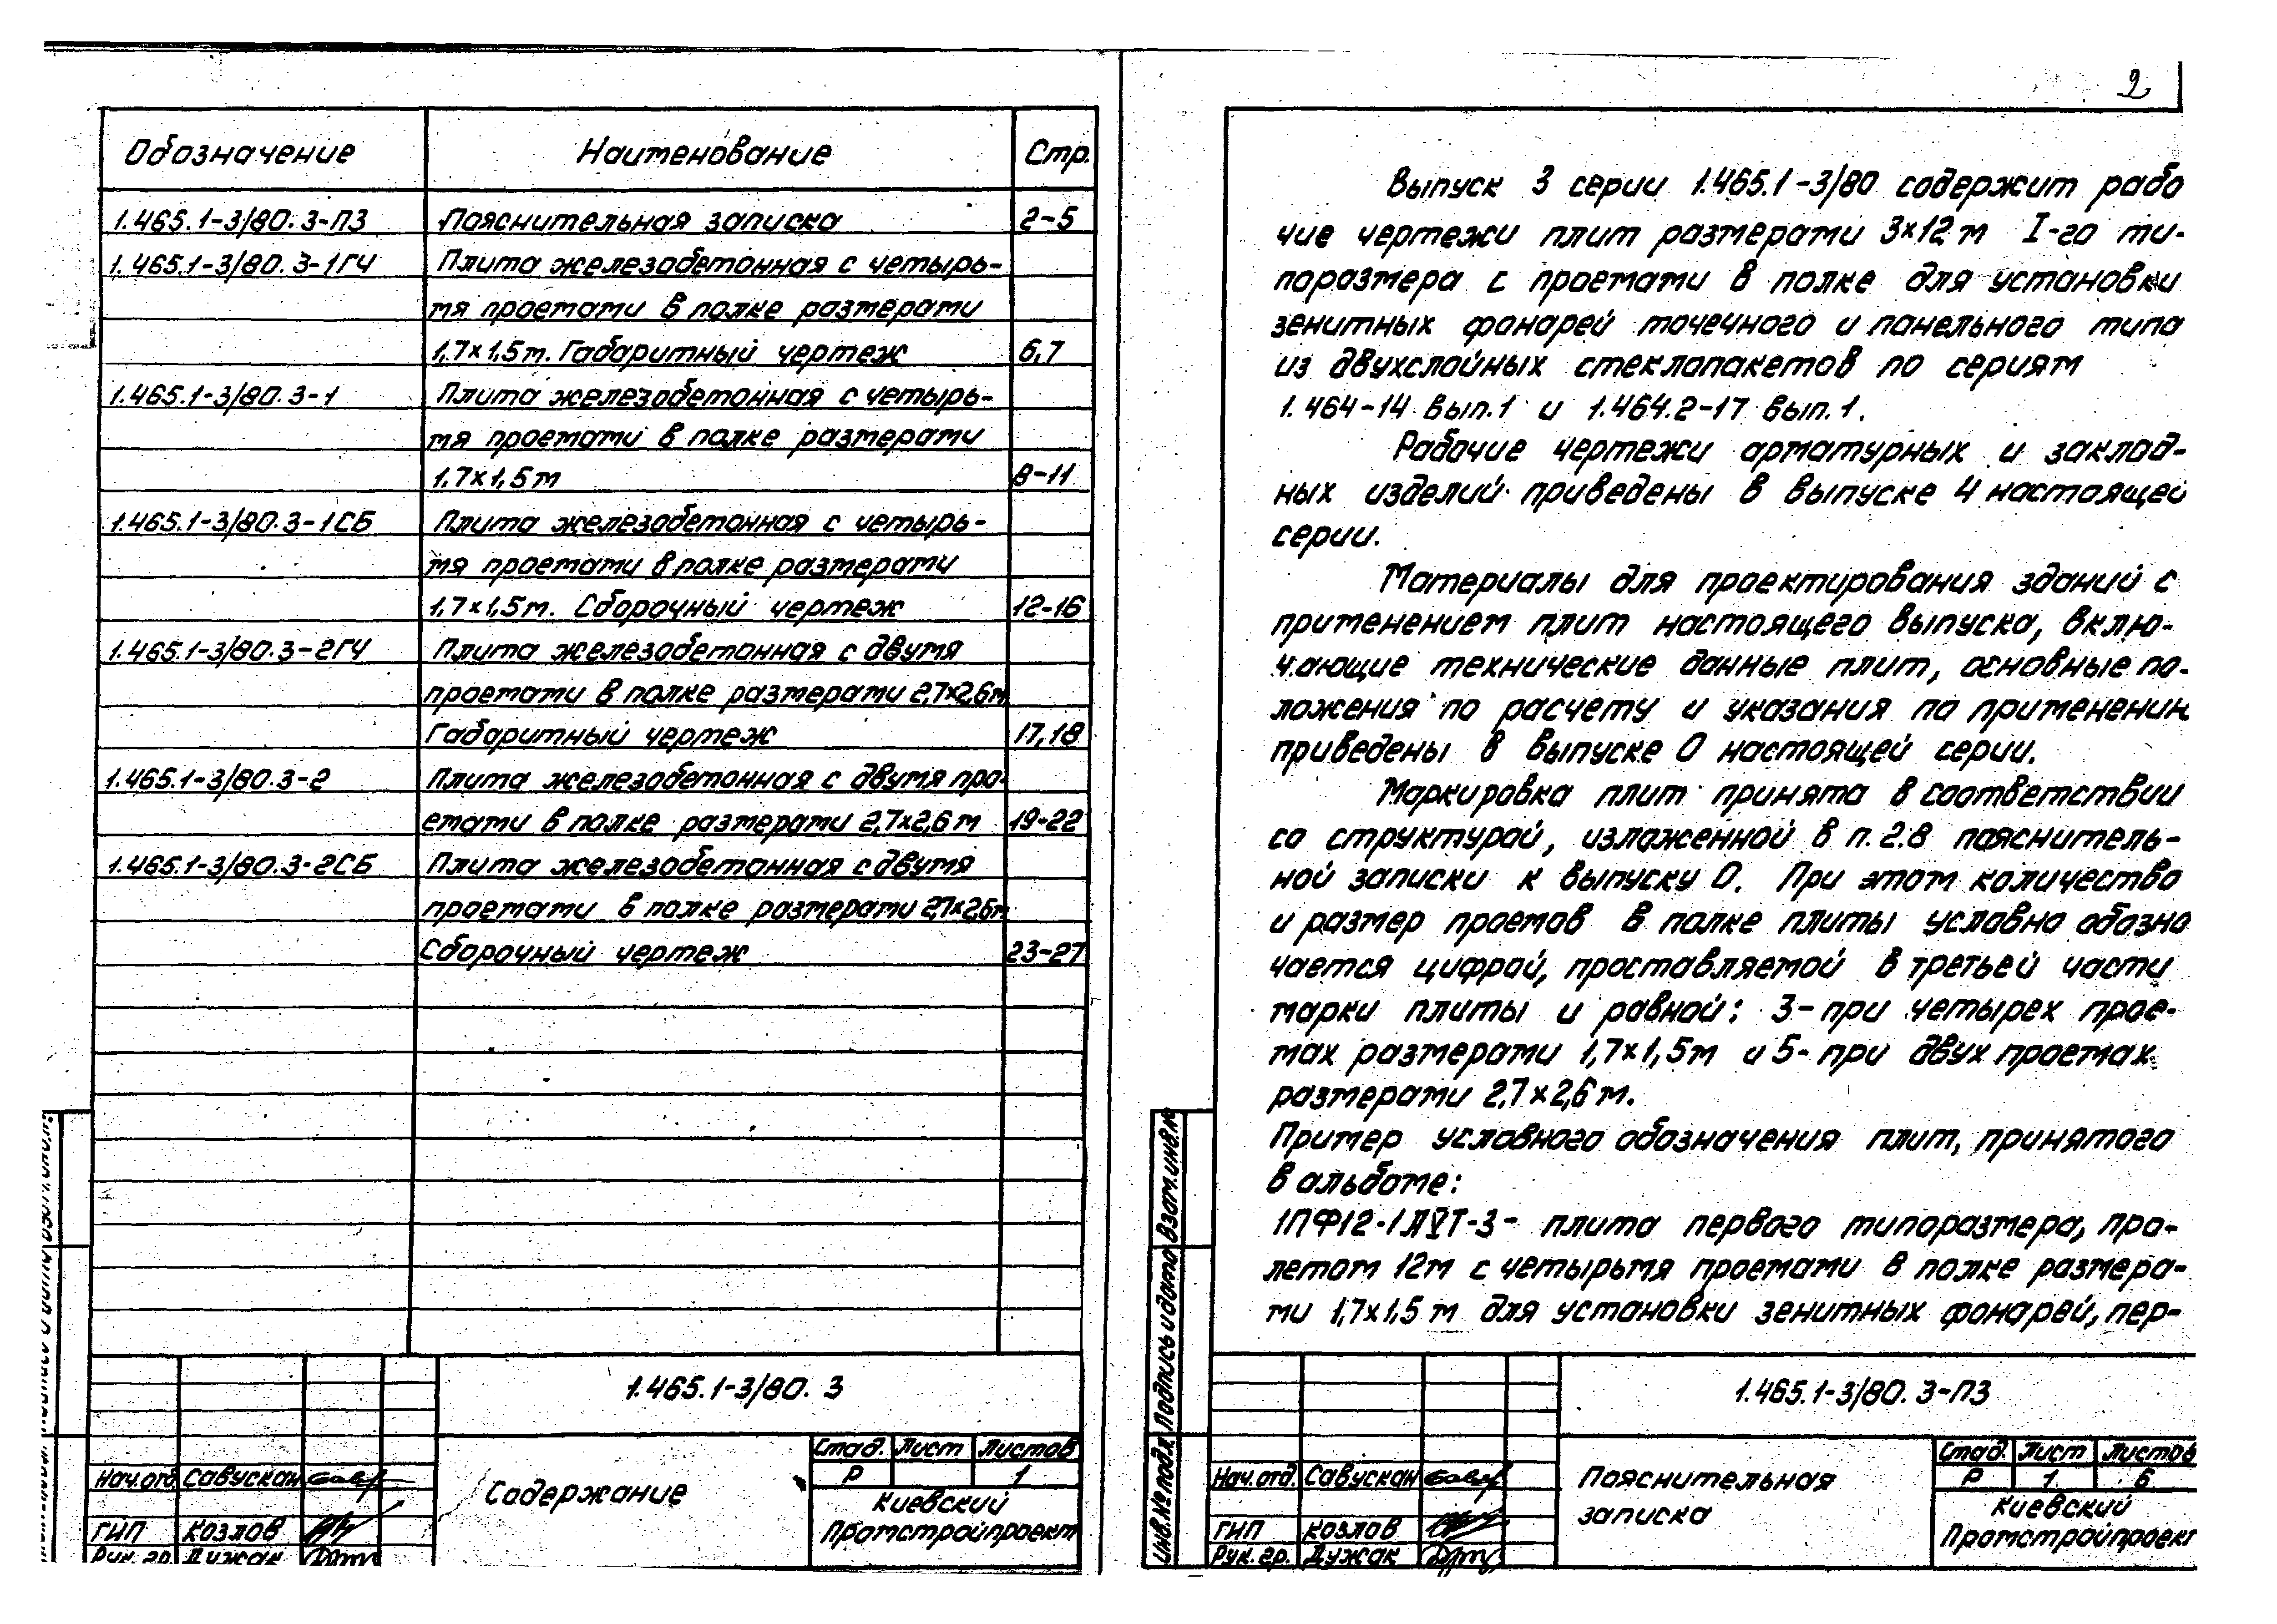 Обозначение Наименование Стр.
1.465.1-3/80.3-ПЗ Пояснительная записка 2-5
1.465.1-3/80.3-1ГЧ Плита железобетонная с четырь-
мя проемами в полке размерами
1,7×1,5м. Габаритный чертеж 6,7
1.465.1-3/80.3-1 Плита железобетонная с четырь-
мя проемами в полке размерами
1,7×1,5м 8-11
1.465.1-3/80.3-1СБ Плита железобетонная с четырь-
мя проемами в полке размерами
1,7×1,5м. Сборочный чертеж 12-16
1.465.1-3/80.3-2ГЧ Плита железобетонная с двумя
проемами в полке размерами 2,7×2,6м
Габаритный чертеж 17,18
1.465.1-3/80.3-2 Плита железобетонная с двумя про-
емами в полке размерами 2,7×2,6м 19-22
1.465.1-3/80.3-2СБ Плита железобетонная с двумя
проемами в полке размерами 2,7×2,6м
Сборочный чертеж 23-27
1.465.1-3/80. 3
Содержание
Стад. Лист Листов
Р 1
Киевский
Промстройпроект
Нач.отд. Савускан
ГИП Козлов
Рук. гр. Дужак
2
Выпуск 3 серии 1.465.1-3/80 содержит рабо
чие чертежи плит размерами 3×12м I-го ти-
поразмера с проемами в полке для установки
зенитных фонарей точечного и панельного типа
из двухслойных стеклопакетов по сериям
1.464-14 вып.1 и 1.464.2-17 вып.1.
Рабочие чертежи арматурных и заклад-
ных изделий приведены в выпуске 4 настоящей
серии.
Материалы для проектирования зданий с
применением плит настоящего выпуска, вклю-
чающие технические данные плит, основные по-
ложения по расчету и указания по применению
приведены в выпуске 0 настоящей серии.
Маркировка плит принята в соответствии
со структурой, изложенной в п. 2.8 пояснитель-
ной записки к выпуску 0. При этом количество
и размер проемов в полке плиты условно обозна
чается цифрой, проставляемой в третьей части
марки плиты и равной: 3-при четырех прое-
мах размерами 1,7×1,5м и 5-при двух проемах
размерами 2,7×2,6м.
Пример условного обозначения плит, принятого
в альбоме:
1ПФ12-1АVТ-3- плита первого типоразмера, про-
летом 12м с четырьмя проемами в полке размера-
ми 1,7×1,5м для установки зенитных фонарей, пер-
Взам.инв.№
Подпись и дата
Инв.№ подл.
1.465.1-3/80. 3-ПЗ
Пояснительная
записка
Стад. Лист Листов
Р 1 6
Киевский
Промстройпроект
Нач.отд. Савускан
ГИП Козлов
Рук. гр. Дужак